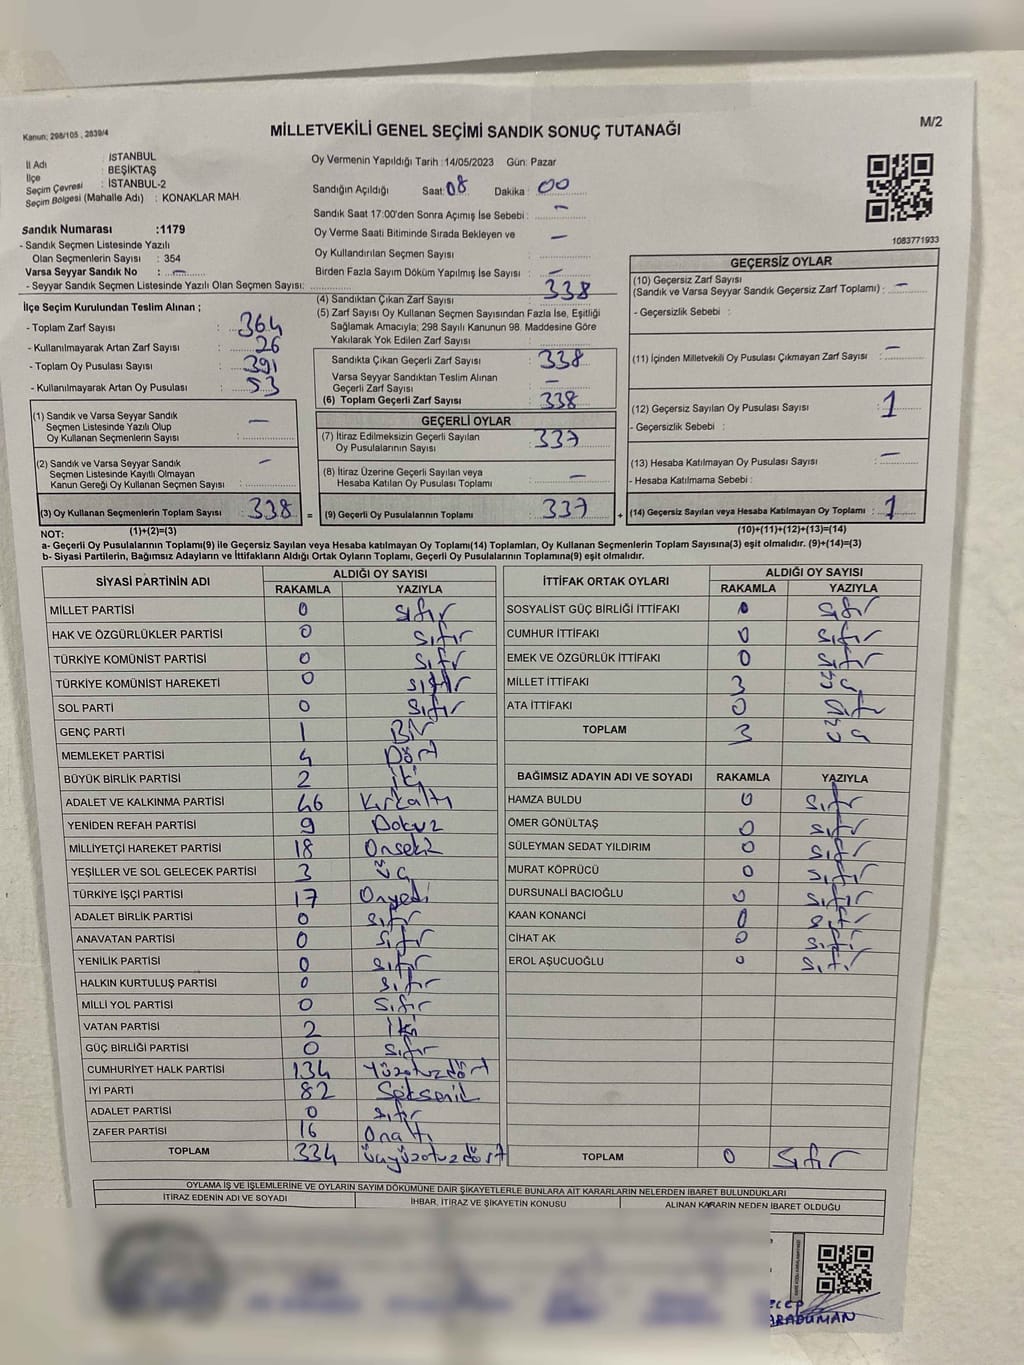 Kanun; 298/105 , 2839/4
MİLLETVEKİLİ GENEL SEÇİMİ SANDIK SONUÇ TUTANAĞI
M/2
İl Adı : İSTANBUL
İlçe : BEŞİKTAŞ
Seçim Çevresi : İSTANBUL-2
Seçim Bölgesi (Mahalle Adı) : KONAKLAR MAH.
Oy Vermenin Yapıldığı Tarih :14/05/2023 Gün: Pazar
Sandığın Açıldığı Saat:08 Dakika : 00
Sandık Saat 17:00'den Sonra Açımış İse Sebebi : –
Oy Verme Saati Bitiminde Sırada Bekleyen ve
Oy Kullandırılan Seçmen Sayısı –
Birden Fazla Sayım Döküm Yapılmış İse Sayısı : –
1083771933
Sandık Numarası :1179
- Sandık Seçmen Listesinde Yazılı
Olan Seçmenlerin Sayısı : 354
Varsa Seyyar Sandık No : –
- Seyyar Sandık Seçmen Listesinde Yazılı Olan Seçmen Sayısı:
İlçe Seçim Kurulundan Teslim Alınan ;
- Toplam Zarf Sayısı : 364
- Kullanılmayarak Artan Zarf Sayısı : 26
- Toplam Oy Pusulası Sayısı : 391
- Kullanılmayarak Artan Oy Pusulası : 53
(1) Sandık ve Varsa Seyyar Sandık
Seçmen Listesinde Yazılı Olup
Oy Kullanan Seçmenlerin Sayısı : –
(2) Sandık ve Varsa Seyyar Sandık
Seçmen Listesinde Kayıtlı Olmayan
Kanun Gereği Oy Kullanan Seçmen Sayısı : –
(3) Oy Kullanan Seçmenlerin Toplam Sayısı : 338
(1)+(2)=(3)
(4) Sandıktan Çıkan Zarf Sayısı : 338
(5) Zarf Sayısı Oy Kullanan Seçmen Sayısından Fazla İse, Eşitliği
Sağlamak Amacıyla; 298 Sayılı Kanunun 98. Maddesine Göre
Yakılarak Yok Edilen Zarf Sayısı :
Sandıkta Çıkan Geçerli Zarf Sayısı : 338
Varsa Seyyar Sandıktan Teslim Alınan
Geçerli Zarf Sayısı : –
(6) Toplam Geçerli Zarf Sayısı : 338
GEÇERLİ OYLAR
(7) İtiraz Edilmeksizin Geçerli Sayılan
Oy Pusulalarının Sayısı : 337
(8) İtiraz Üzerine Geçerli Sayılan veya
Hesaba Katılan Oy Pusulası Toplamı : –
= (9) Geçerli Oy Pusulalarının Toplamı : 337
GEÇERSİZ OYLAR
(10) Geçersiz Zarf Sayısı
(Sandık ve Varsa Seyyar Sandık Geçersiz Zarf Toplamı) : –
- Geçersizlik Sebebi :
(11) İçinden Milletvekili Oy Pusulası Çıkmayan Zarf Sayısı : –
(12) Geçersiz Sayılan Oy Pusulası Sayısı : 1
- Geçersizlik Sebebi :
(13) Hesaba Katılmayan Oy Pusulası Sayısı : –
- Hesaba Katılmama Sebebi :
+ (14) Geçersiz Sayılan veya Hesaba Katılmayan Oy Toplamı : 1
(10)+(11)+(12)+(13)=(14)
NOT:
a- Geçerli Oy Pusulalarının Toplamı(9) ile Geçersiz Sayılan veya Hesaba katılmayan Oy Toplamı(14) Toplamları, Oy Kullanan Seçmenlerin Toplam Sayısına(3) eşit olmalıdır. (9)+(14)=(3)
b- Siyasi Partilerin, Bağımsız Adayların ve İttifakların Aldığı Ortak Oyların Toplamı, Geçerli Oy Pusulalarının Toplamına(9) eşit olmalıdır.
SİYASİ PARTİNİN ADI ALDIĞI OY SAYISI
RAKAMLA YAZIYLA
MİLLET PARTİSİ 0 sıfır
HAK VE ÖZGÜRLÜKLER PARTİSİ 0 sıfır
TÜRKİYE KOMÜNİST PARTİSİ 0 sıfır
TÜRKİYE KOMÜNİST HAREKETİ 0 sıfır
SOL PARTİ 0 sıfır
GENÇ PARTİ 1 Bir
MEMLEKET PARTİSİ 4 Dört
BÜYÜK BİRLİK PARTİSİ 2 iki
ADALET VE KALKINMA PARTİSİ 46 Kırkaltı
YENİDEN REFAH PARTİSİ 9 Dokuz
MİLLİYETÇİ HAREKET PARTİSİ 18 Onsekiz
YEŞİLLER VE SOL GELECEK PARTİSİ 3 üç
TÜRKİYE İŞÇİ PARTİSİ 17 Onyedi
ADALET BİRLİK PARTİSİ 0 sıfır
ANAVATAN PARTİSİ 0 sıfır
YENİLİK PARTİSİ 0 sıfır
HALKIN KURTULUŞ PARTİSİ 0 sıfır
MİLLİ YOL PARTİSİ 0 sıfır
VATAN PARTİSİ 2 İki
GÜÇ BİRLİĞİ PARTİSİ 0 sıfır
CUMHURİYET HALK PARTİSİ 134 Yüzotuzdört
İYİ PARTİ 82 Seksenik
ADALET PARTİSİ 0 sıfır
ZAFER PARTİSİ 16 Onaltı
TOPLAM 334 üçyüzotuzdört
İTTİFAK ORTAK OYLARI ALDIĞI OY SAYISI
RAKAMLA YAZIYLA
SOSYALİST GÜÇ BİRLİĞİ İTTİFAKI 0 sıfır
CUMHUR İTTİFAKI 0 sıfır
EMEK VE ÖZGÜRLÜK İTTİFAKI 0 sıfır
MİLLET İTTİFAKI 3 üç
ATA İTTİFAKI 0 sıfır
TOPLAM 3 üç
BAĞIMSIZ ADAYIN ADI VE SOYADI RAKAMLA YAZIYLA
HAMZA BULDU 0 sıfır
ÖMER GÖNÜLTAŞ 0 sıfır
SÜLEYMAN SEDAT YILDIRIM 0 sıfır
MURAT KÖPRÜCÜ 0 sıfır
DURSUNALİ BACIOĞLU 0 sıfır
KAAN KONANCİ 0 sıfır
CİHAT AK 0 sıfır
EROL AŞUCUOĞLU 0 sıfır
TOPLAM 0 sıfır
OYLAMA İŞ VE İŞLEMLERİNE VE OYLARIN SAYIM DÖKÜMÜNE DAİR ŞİKAYETLERLE BUNLARA AİT KARARLARIN NELERDEN İBARET BULUNDUKLARI
İTİRAZ EDENİN ADI VE SOYADI İHBAR, İTİRAZ VE ŞİKAYETİN KONUSU ALINAN KARARIN NEDEN İBARET OLDUĞU